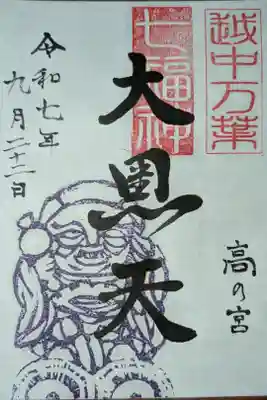 越中万葉
七福神
大黒天
高の宮
令和七年
九月二十二日